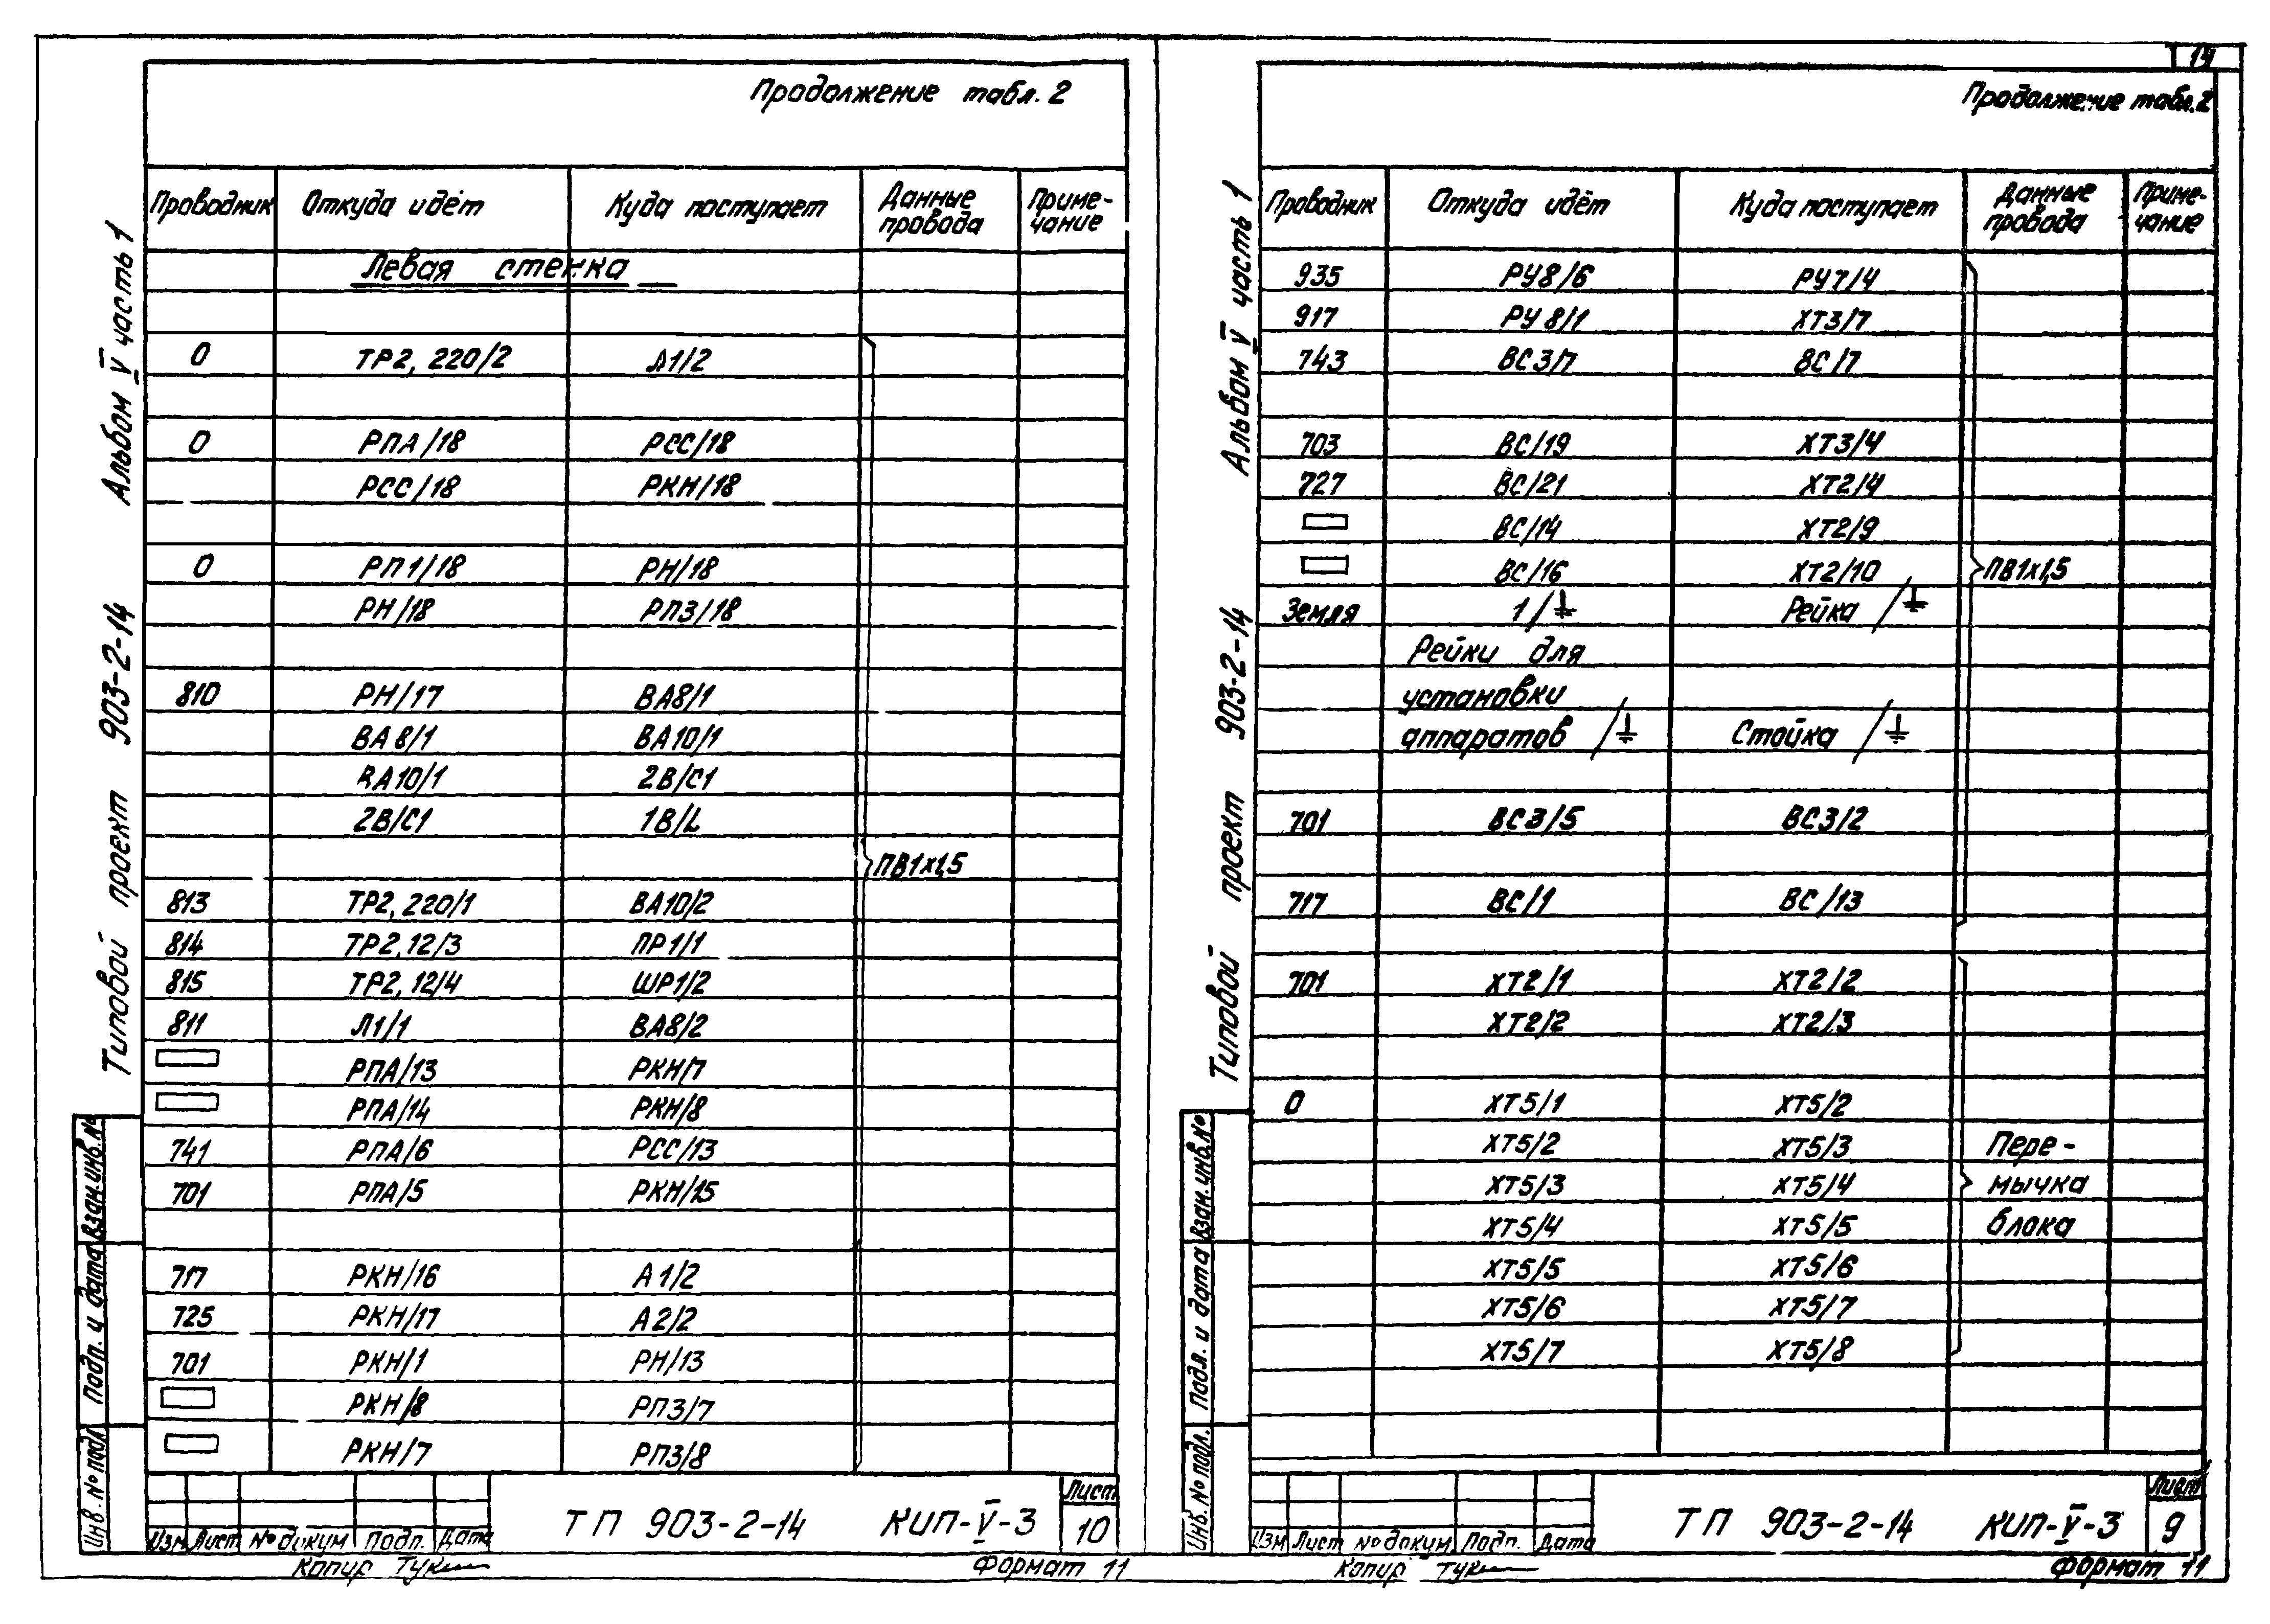 14
Продолжение табл. 2
Проводник Откуда идёт Куда поступает Данные провода Приме-чание
Левая стенка
0 ТР2, 220/2 Л1/2
0 РПА/18 РСС/18
РСС/18 РКН/18
0 РП1/18 РН/18
РН/18 РП3/18
810 РН/17 ВА8/1
ВА8/1 ВА10/1
ВА10/1 2В/С1
2В/С1 1В/L
ПВ1х1,5
813 ТР2, 220/1 ВА10/2
814 ТР2, 12/3 ПР1/1
815 ТР2, 12/4 ШР1/2
811 Л1/1 ВА8/2
РПА/13 РКН/7
РПА/14 РКН/8
741 РПА/6 РСС/13
701 РПА/5 РКН/15
717 РКН/16 А1/2
725 РКН/17 А2/2
701 РКН/1 РН/13
РКН/8 РП3/7
РКН/7 РП3/8
Типовой проект 903-2-14 Альбом V часть 1
Взам. инв. №
Подп. и дата
Инв. № подл
Изм Лист № докум Подп. Дата
ТП 903-2-14 КИП-V-3
Лист
10
Копир
Формат 11
Продолжение табл. 2
Проводник Откуда идёт Куда поступает Данные провода Приме-чание
935 РУ8/6 РУ7/4
917 РУ8/1 ХТ3/7
743 ВС3/7 ВС/7
703 ВС/19 ХТ3/4
727 ВС/21 ХТ2/4
ВС/14 ХТ2/9
ВС/16 ХТ2/10 ПВ1х1,5
Земля 1/⏚ Рейка /⏚
Рейки для
установки
аппаратов /⏚ Стойка /⏚
701 ВС3/5 ВС3/2
717 ВС/1 ВС/13
701 ХТ2/1 ХТ2/2
ХТ2/2 ХТ2/3
0 ХТ5/1 ХТ5/2
ХТ5/2 ХТ5/3 Пере-
ХТ5/3 ХТ5/4 мычка
ХТ5/4 ХТ5/5 блока
ХТ5/5 ХТ5/6
ХТ5/6 ХТ5/7
ХТ5/7 ХТ5/8
Типовой проект 903-2-14 Альбом V часть 1
Взам. инв. №
Подл. и дата
Инв. № подл.
Изм Лист № докум. Подп. Дата
ТП 903-2-14 КИП-V-3
Лист
9
Копир
Формат 11